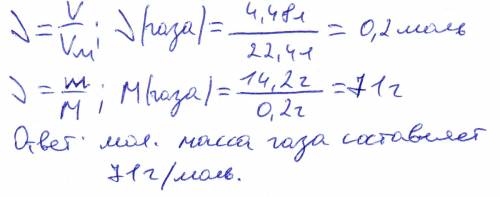 ν = V/Vм; ν(газа) = 4,48л/22,4л = 0,2 моль
ν = m/M; M(газа) = 14,2г/0,2г = 71г
Ответ: мол. масса газа составляет
71г/моль.